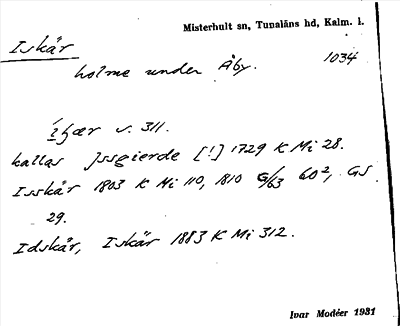 Misterhult sn, Tunaläns hd, Kalm. l.
Iskär
holme under Åby. 1034
ịʃær s. 311.
kallas Jssgierde [!] 1729 K Mi 28.
Isskär 1803 K Mi 110, 1810 G/63 60², GS
29.
Idskär, Iskär 1883 K Mi 312.
Ivar Modéer 1931